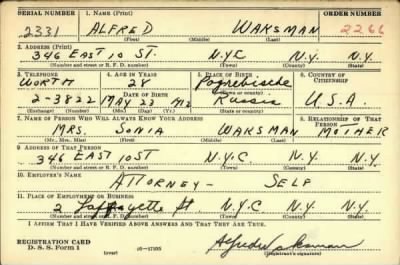 SERIAL NUMBER 1. NAME (Print) ORDER NUMBER
2331 ALFRED WAKSMAN 2266
(First) (Middle) (Last)
2. ADDRESS (Print)
346 EAST 10 ST. N.Y.C N.Y. N.Y.
(Number and street or R. F. D. number) (Town) (County) (State)
3. TELEPHONE 4. AGE IN YEARS 5. PLACE OF BIRTH 6. COUNTRY OF CITIZENSHIP
WORTH 28 Pogrebische
DATE OF BIRTH (Town or county)
2-3822 MAY 23 1912 Russia U.S.A.
(Mo.) (Day) (Yr.) (State or country)
7. NAME OF PERSON WHO WILL ALWAYS KNOW YOUR ADDRESS 8. RELATIONSHIP OF THAT PERSON
MRS. SONIA WAKSMAN MOTHER
(Mr., Mrs., Miss) (First) (Middle) (Last)
9. ADDRESS OF THAT PERSON
346 EAST 10 ST N.Y.C N.Y. N.Y.
(Number and street or R. F. D. number) (Town) (County) (State)
10. EMPLOYER'S NAME
ATTORNEY- SELF
11. PLACE OF EMPLOYMENT OR BUSINESS
2 Laffayette St. N.Y.C N.Y. N.Y.
(Number and street or R. F. D. number) (Town) (County) (State)
I AFFIRM THAT I HAVE VERIFIED ABOVE ANSWERS AND THAT THEY ARE TRUE.
REGISTRATION CARD
D. S. S. Form 1 (over) 16-17105 Alfred Waksman
(Registrant's signature)